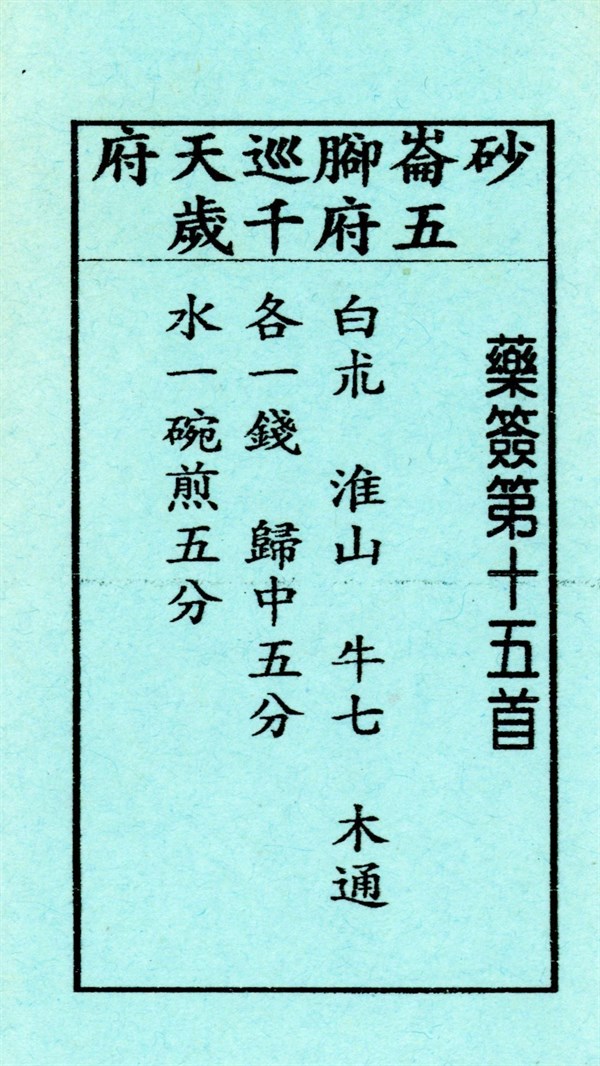 砂崙腳巡天府
五府千歲
藥簽第十五首
白朮 淮山 牛七 木通
各一錢 歸中五分
水一碗煎五分